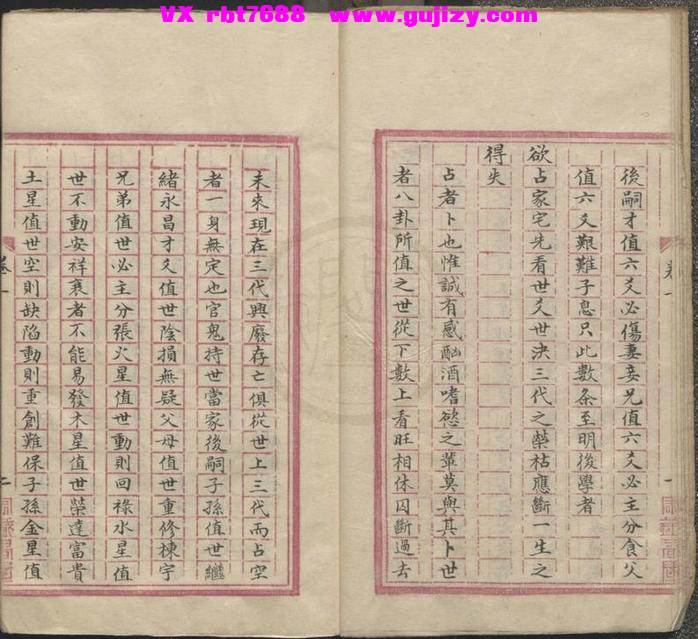 VX rbt7688 www.gujizy.com
後嗣才值六爻必傷妻妾兄值六爻必主分食父
值六爻艱難子息只此數条至明後學者
欲占家宅先看世爻世決三代之榮枯應斷一生之
得失
占者卜也惟誠有感酗酒嗜慾之輩莫與其卜世
者八卦所值之世從下數上看旺相休囚斷過去
卷一
一
未來現在三代興廢存亡俱從世上三代而占空
者一身無定也官鬼持世當家後嗣子孫值世繼
緒永昌才爻值世陰損無疑父母值世重修棟宇
兄弟值世必主分張火星值世動則回祿水星值
世不動安祥衰者不能易發木星值世榮達富貴
土星值世空則缺陷動則重創難保子孫金星值
卷一
二